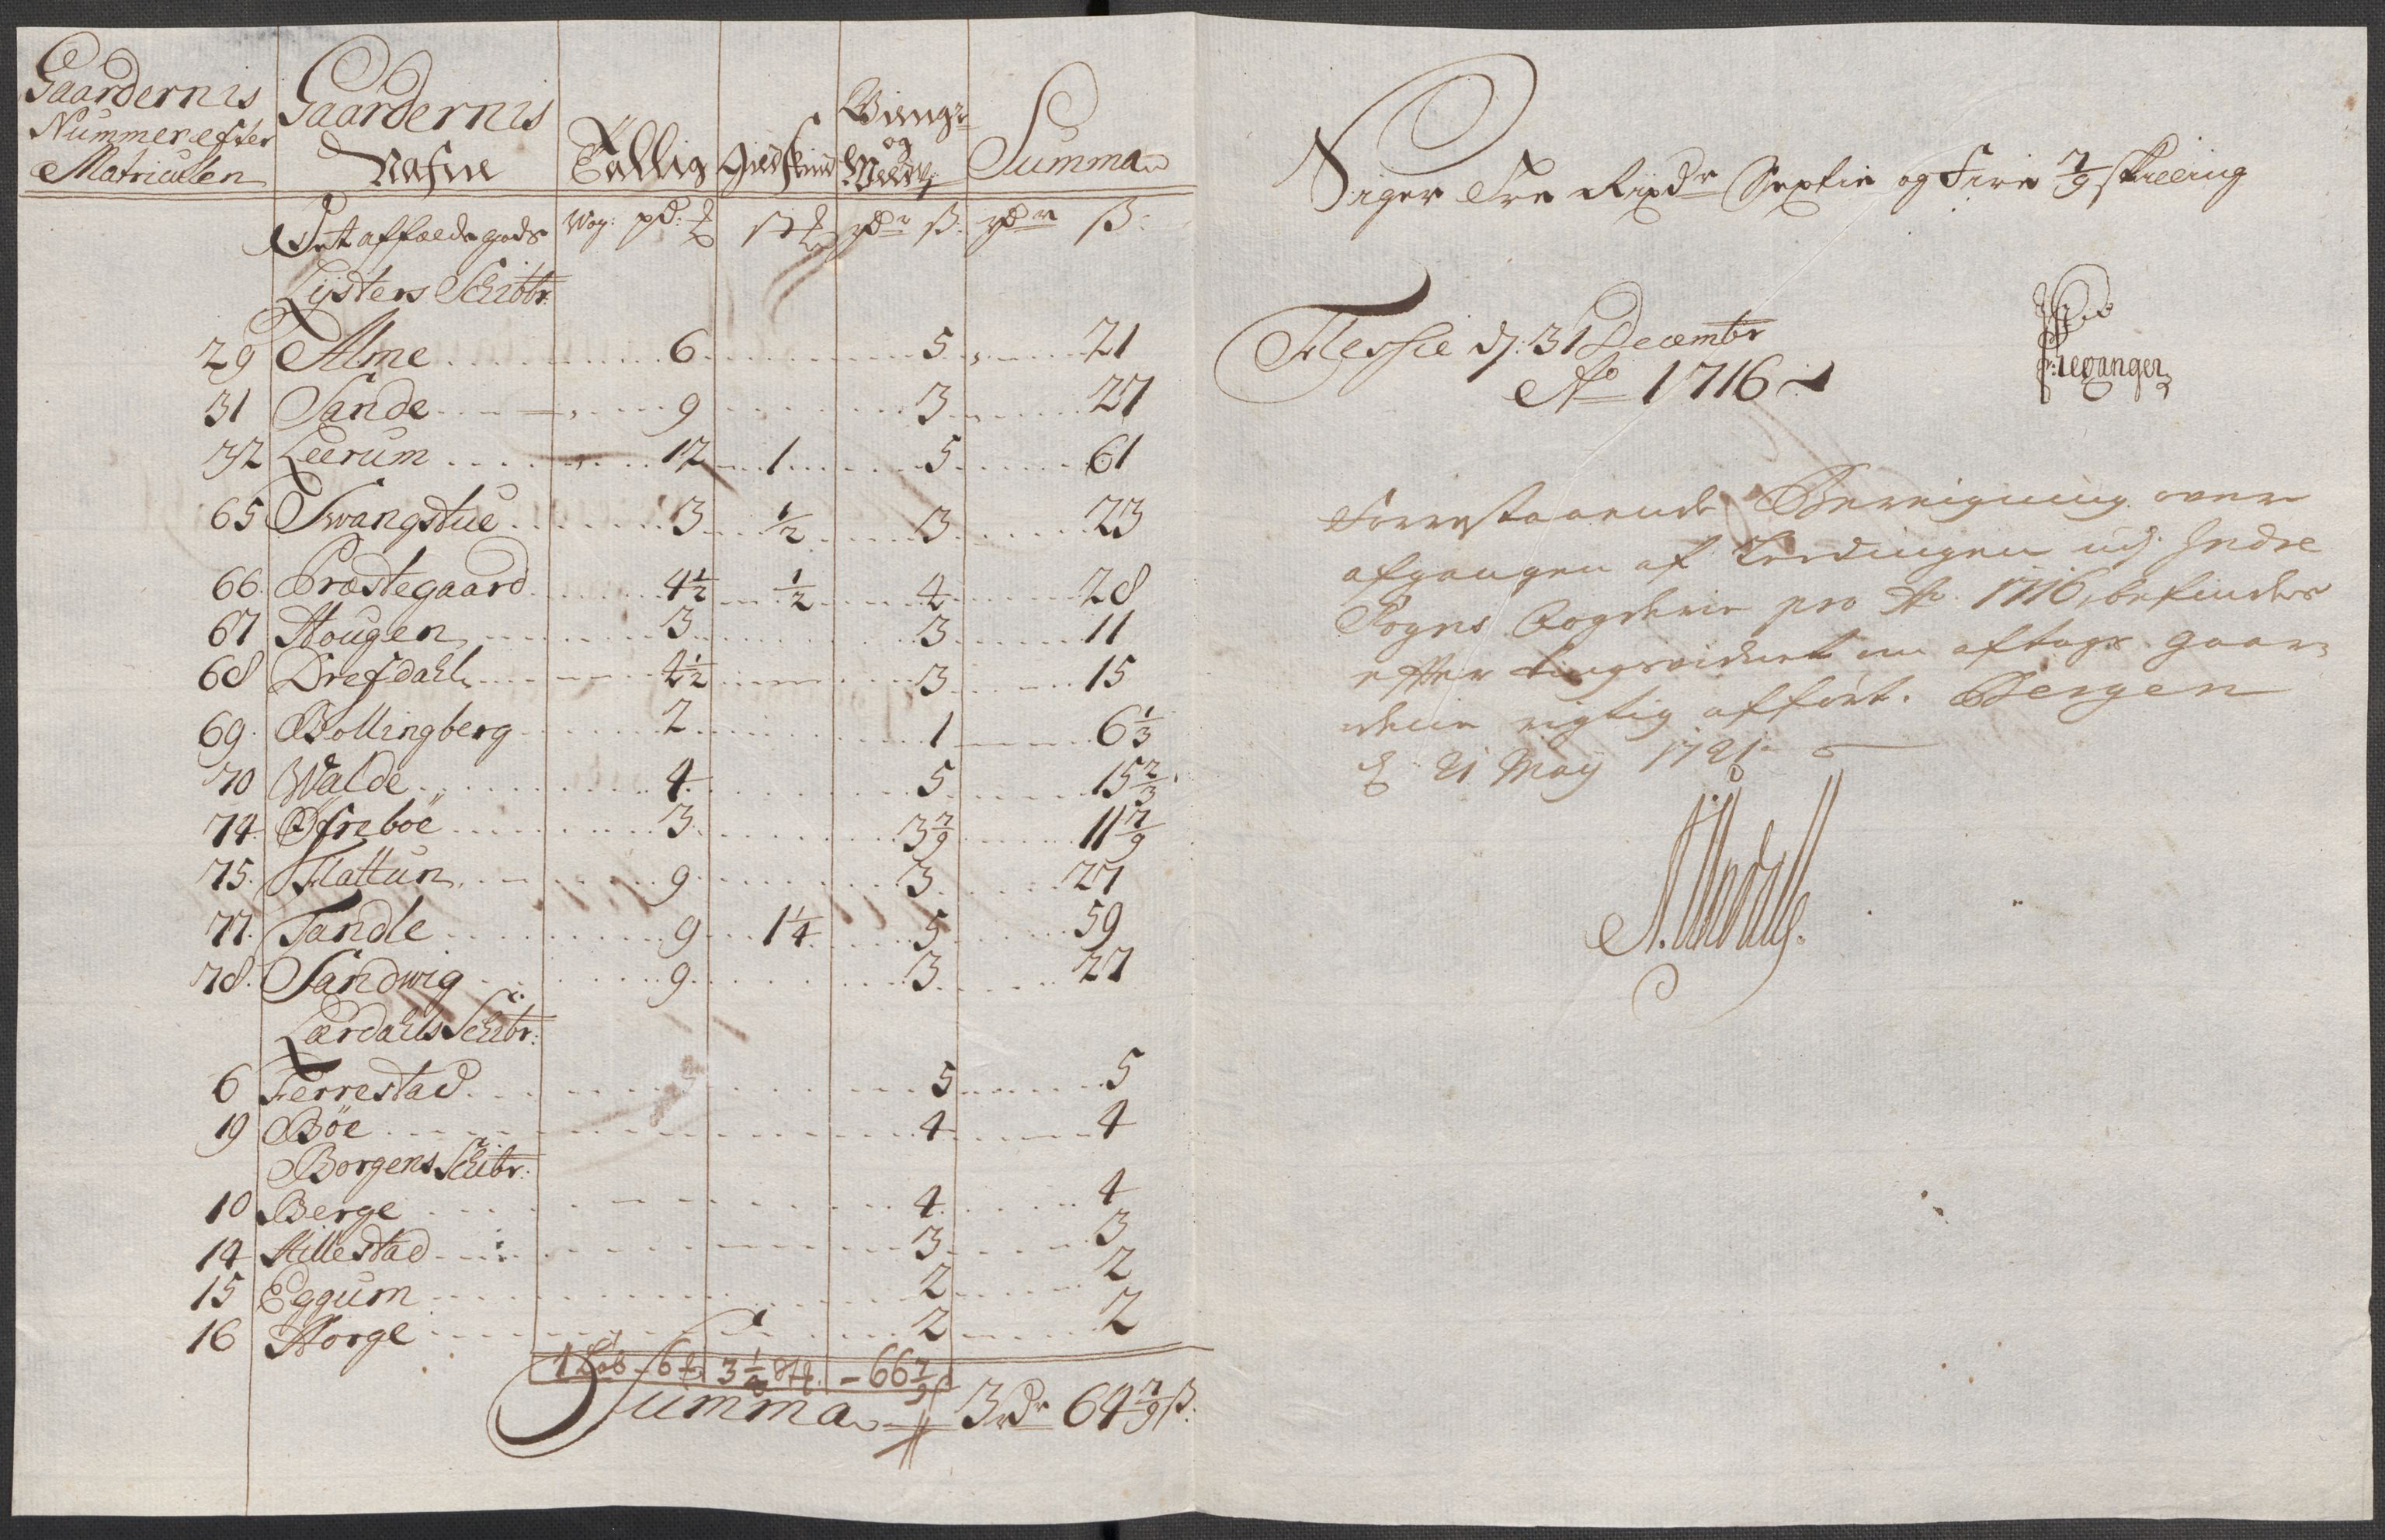 Gaardernis
Nummer efter
Matriculen
Gaardernis
Nafne
Tallig
Giedskind
Vieng
og
Summa
Det affælds gods Wog: pd: rdr ß. rdr ß:
Lysters Schibbr:
29 Alme 6 5 21
31 Sande 9 3 27
32 Leerum 12 1 5 61
65 Svangstue 3 1/2 3 23
66. Præstegaard 4 1/2 1/2 4 28
67 Hougen 3 3 11
68 Drefsdahl 4 1/2 3 15
69. Bollingberg 2 1 6 1/3
70 Walde 4 5 15 2/3
74. Øfreboe 3 3 7/9 11 7/9
75. Flattun 9 3 27
77. Tandle 9 1 1/4 5 59
78. Sandwig 9 3 27
Lærdahls Schibr:
6 Ferrestad 5 5
19 Böe 4 4
Borgens Schibr:
10 Berge 4 4
14 Hillestad 3 3
15 Eggum 2 2
16 Horge 2 2
1 Løb 6 3 1/4 - 66 7/9
Summa 3 Rdr 64 7/9 ß.
Siger Tre Rixdr Sextie og Fire 7/9 skilling
Flessie d: 31 Decembr
Ao 1716
Forrestaaende Beregning over
afgangen af Leedingen udj Indre
Sogns Fogderie pro Ao. 1716, befindes
efter tingsvidnet om aftags gaar-
dene rigtig afført. Bergen
d. 21 May 1721